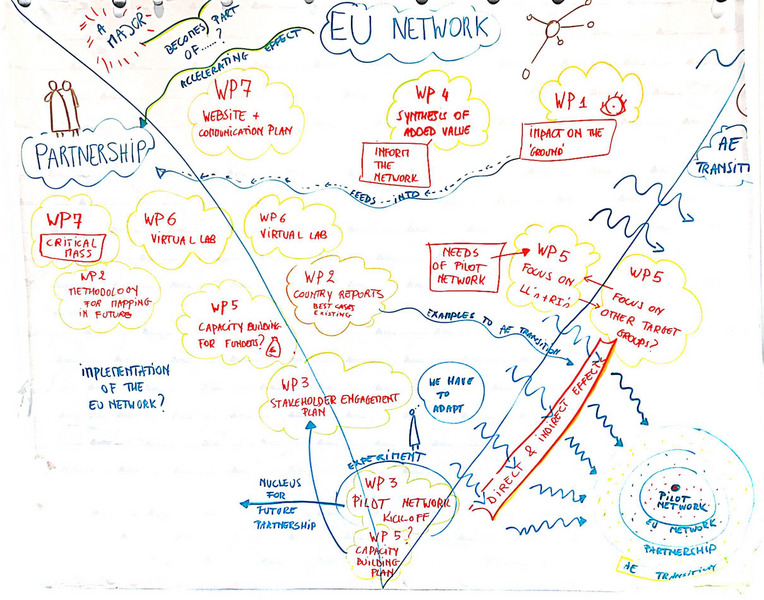 A
MAJOR
BECOMES PART
OF.....?
ACCELERATING EFFECT
EU NETWORK
WP7
WEBSITE +
COMMUNICATION PLAN
WP 4
SYNTHESIS OF
ADDED VALUE
INFORM
THE
NETWORK
WP 1
IMPACT ON THE
'GROUND'
AE
TRANSITI
PARTNERSHIP
FEEDS INTO
WP7
CRITICAL
MASS
WP6
VIRTUAL LAB
WP6
VIRTUAL LAB
WP2
METHODOLOGY
FOR MAPPING
IN FUTURE
WP 5
CAPACITY BUILDING
FOR FUNDERS?
WP2
COUNTRY REPORTS
BEST CASES
EXISTING
NEEDS
OF PILOT
NETWORK
WP5
FOCUS ON
LL's + RI's
WP5
FOCUS ON
OTHER TARGET
GROUPS?
EXAMPLES TO AE TRANSITION
IMPLEMENTATION
OF THE
EU NETWORK?
WP3
STAKEHOLDER ENGAGEMENT
PLAN
WE HAVE
TO
ADAPT
DIRECT & INDIRECT EFFECTS
EXPERIMENT
NUCLEUS
FOR
FUTURE
PARTNERSHIP
WP 3
PILOT NETWORK
KICK-OFF
WP 5?
CAPACITY
BUILDING
PLAN
PILOT
NETWORK
EU NETWORK
PARTNERSHIP
AE TRANSITION